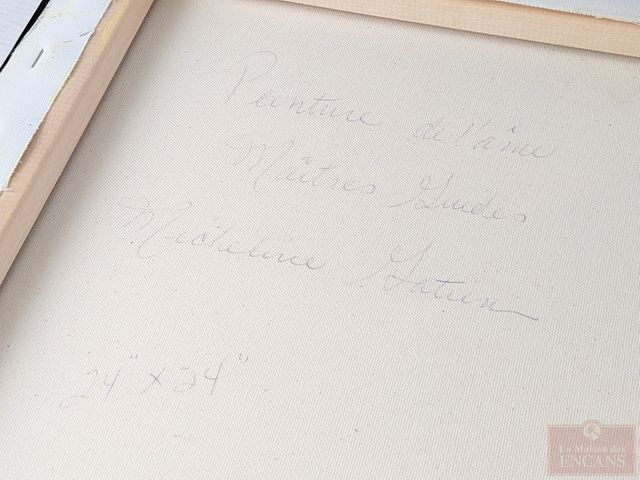 Peinture de l'âme
Maîtres Guides
Micheline Gatien
24" x 24"
La Maison des
ENCANS